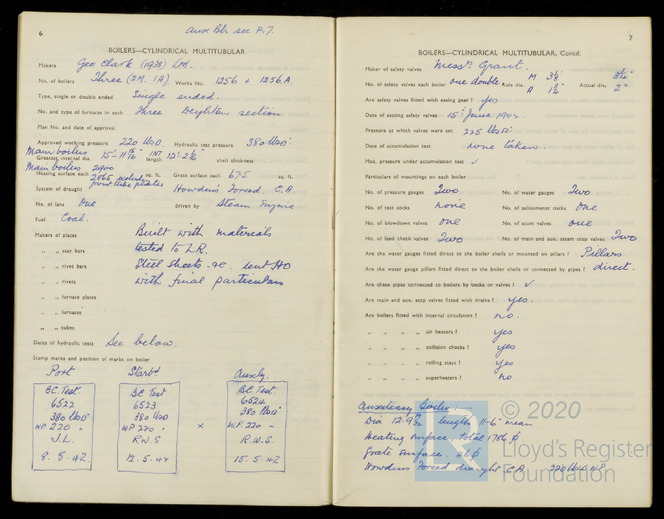 6
Aux Blr see P.7.
BOILERS—CYLINDRICAL MULTITUBULAR
Makers Geo Clark (1938) Ltd.
No. of boilers Three (2M. 1A) Works No. 1256 + 1256A
Type, single or double ended Single ended.
No. and type of furnaces in each Three Deighton section.
Plan No. and date of approval
Approved working pressure 220 lbs□ Hydraulic test pressure 380 lbs□"
Main boilers
Greatest internal dia. 15'-11 15/16" INT length 12'-2½" shell thickness
Main boilers 2900
Heating surface each sq. ft. Grate surface each 67.5 sq. ft.
System of draught Howden's Forced C.A
No. of fans One driven by Steam Engine
Fuel Coal.
Makers of plates Built with materials
„ „ stay bars tested to L.R.
„ „ rivet bars Steel sheets &c. sent HO
„ „ rivets with final particulars
„ „ furnace plates
„ „ furnaces
„ „ tubes
Dates of hydraulic tests See below.
Stamp marks and position of marks on boiler
Port Starbd Auxly.
BC. Test. BC Test BC. Test.
6522 6523. 6524.
380 lbs□" 380 lbs□ 380 lbs□"
WP 220 " WP 220 " × W.P. 220 "
J.L. R.W.S R.W.S.
8.5.42. 12.5.42 15.5.42
7
BOILERS—CYLINDRICAL MULTITUBULAR, Contd.
Maker of safety valves Messrs. Grant.
No. of safety valves each boiler one double Rule dia. M 3⅛" A 1¾" Actual dia. 3¼" 2"
Are safety valves fitted with easing gear? yes
Date of setting safety valves 15th June 1942.
Pressure at which valves were set 225 lbs□"
Date of accumulation test none taken.
Max. pressure under accumulation test ✓
Particulars of mountings on each boiler
No. of pressure gauges Two No. of water gauges Two.
No. of test cocks none No. of salinometer cocks One
No. of blowdown valves one No. of scum valves one
No. of feed check valves Two No. of main and aux. steam stop valves Two
Are the water gauges fitted direct to the boiler shells or mounted on pillars? Pillars
Are the water gauge pillars fitted direct to the boiler shells or connected by pipes? direct.
Are these pipes connected to boilers by cocks or valves? ✓
Are main and aux. stop valves fitted with drains? yes
Are boilers fitted with internal circulators? no.
„ „ „ „ air heaters? yes
„ „ „ „ collision chocks? yes
„ „ „ „ rolling stays? yes
„ „ „ „ superheaters? no
Auxiliary Boiler.
Dia 12'-9 length 11'-6" mean
Heating surface total 1786
Grate surface 41
Howdens Forced draught C.A 220 lbs□ WP
© 2020
Lloyd's Register
Foundation